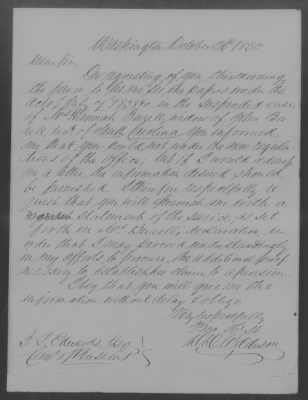 Washington October 1850
Dear Sir,
On requesting of you, this morning,
the favor to let me see the papers under the
act of July 7 1838 &c. in the suspended case
of Mrs Hannah widow of John
of South Carolina you informed
me that you could not under the new regula
tions of the Office; but if I would address
you a letter, the information desired should
be furnished. I therefore respectfully re
quest that you will furnish me with a
statement of the service, as set
forth in Mrs declaration, in
order that I may proceed understandingly
in my efforts to procure the additional proof
necessary to establish her claim to a pension.
that you will give me the
information without delay & oblige
Very respectfully
Your Ob. St.
Addison
J. L. Edwards, Esq.
Comr of Pensions